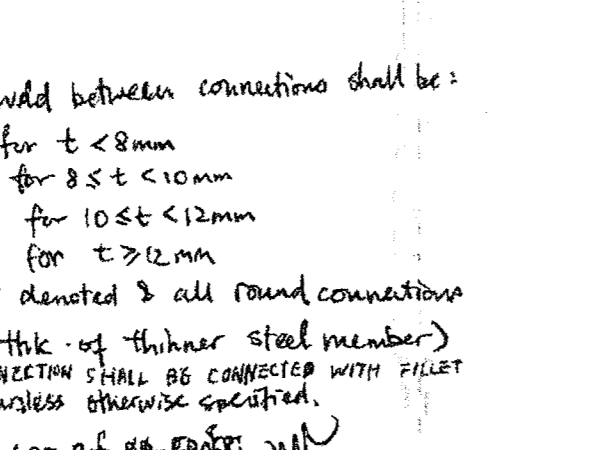 weld between connections shall be:
for t < 8mm
for 8 ≤ t < 10mm
for 10 ≤ t < 12mm
for t ≥ 12mm
denoted & all round connections
thk. of thinner steel member)
NECTION SHALL BE CONNECTED WITH FILLET
unless otherwise specified.
of